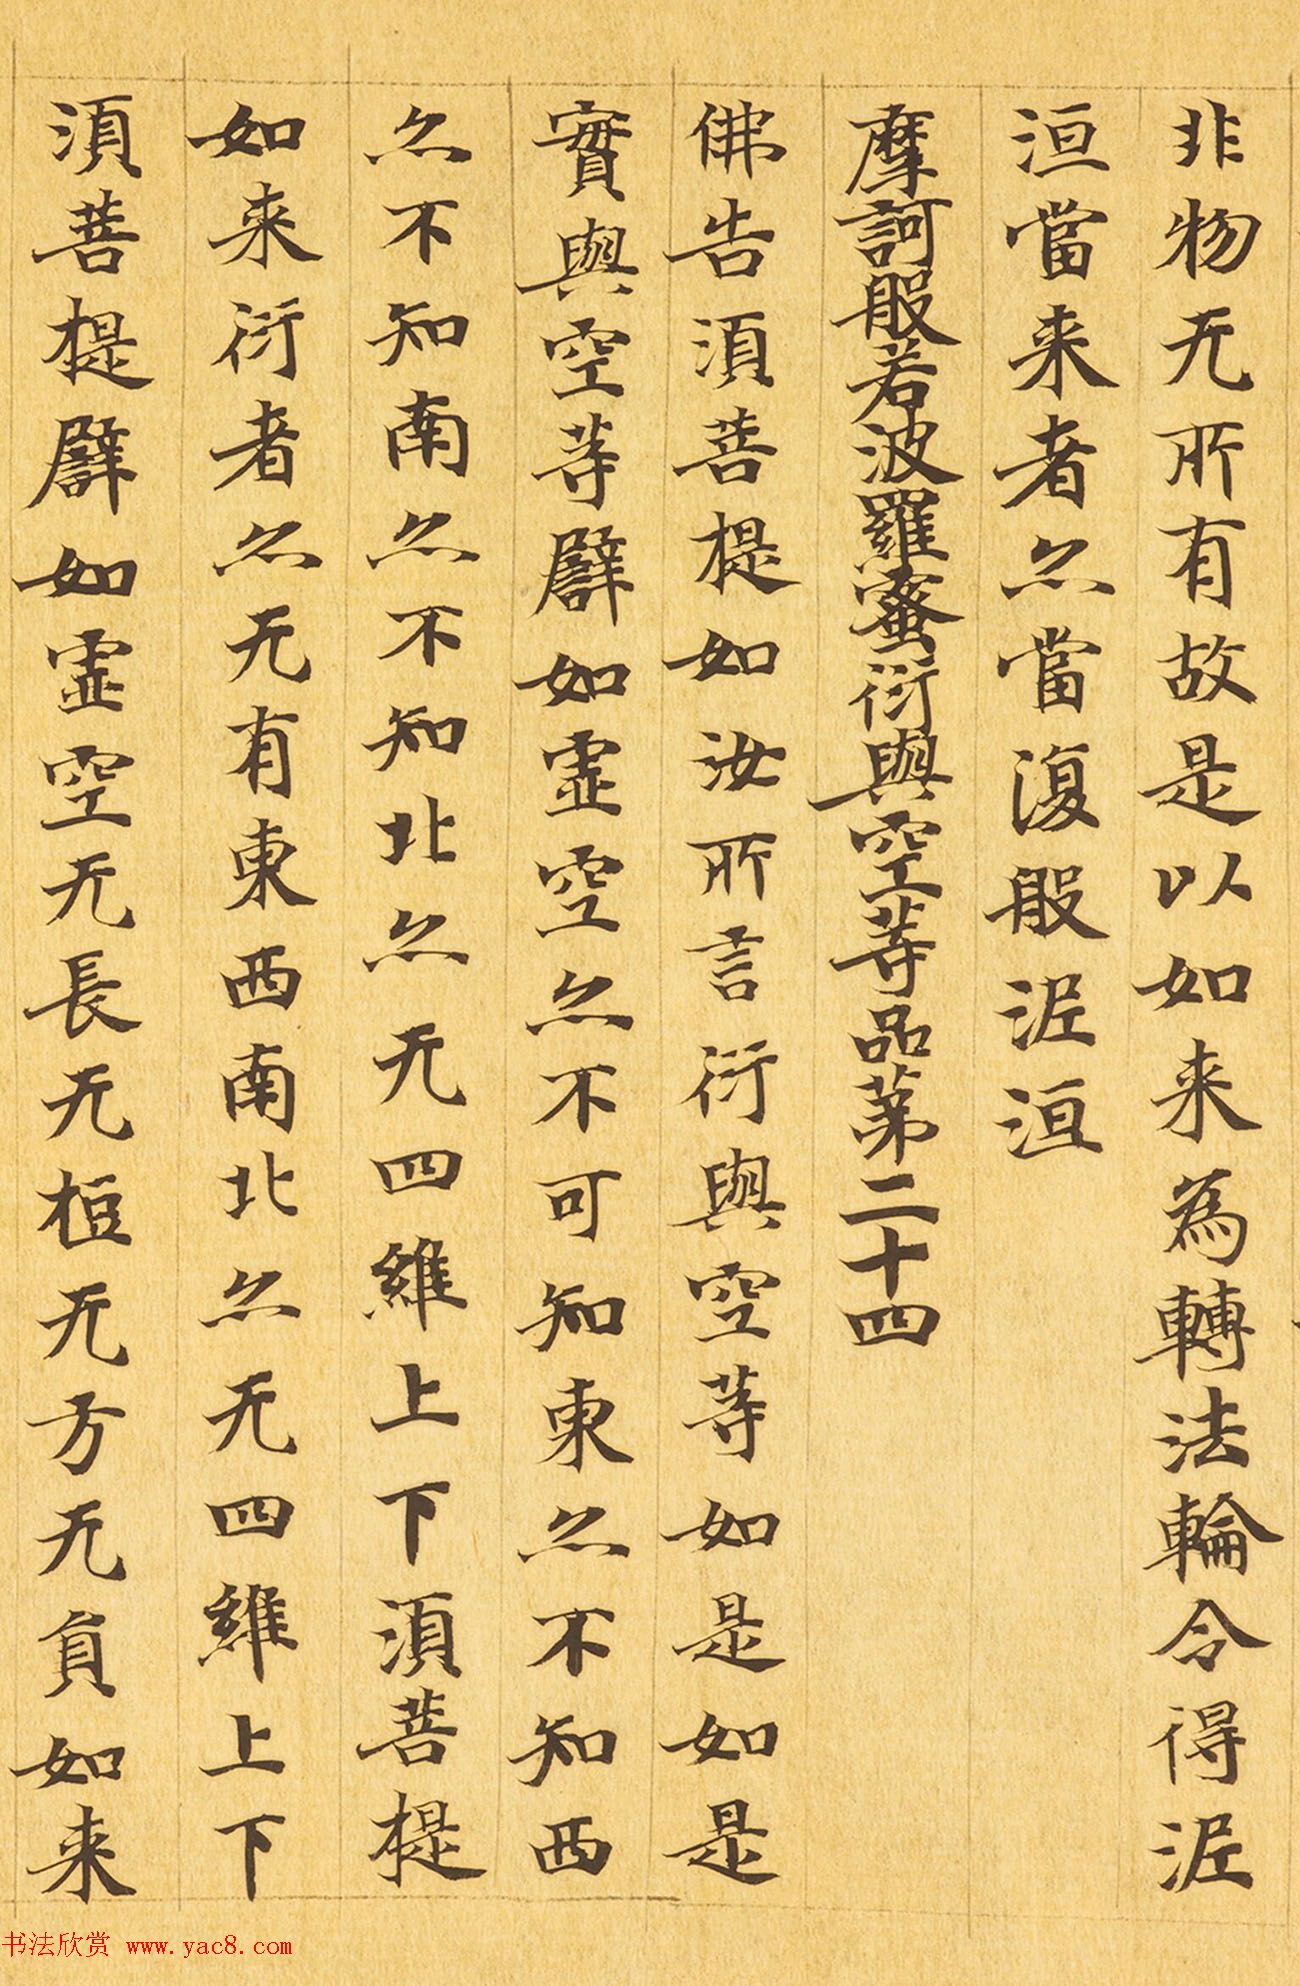 非物无所有故是以如来為轉法輪令得泥
洹當来者亦當復般泥洹
摩訶般若波羅蜜衍與空等品第二十四
佛告須菩提如汝所言衍與空等如是如是
實與空等譬如虛空亦不可知東亦不知西
亦不知南亦不知北亦无四維上下須菩提
如来衍者亦无有東西南北亦无四維上下
須菩提譬如虛空无長无短无方无員如来
书法欣赏 www.yac8.com